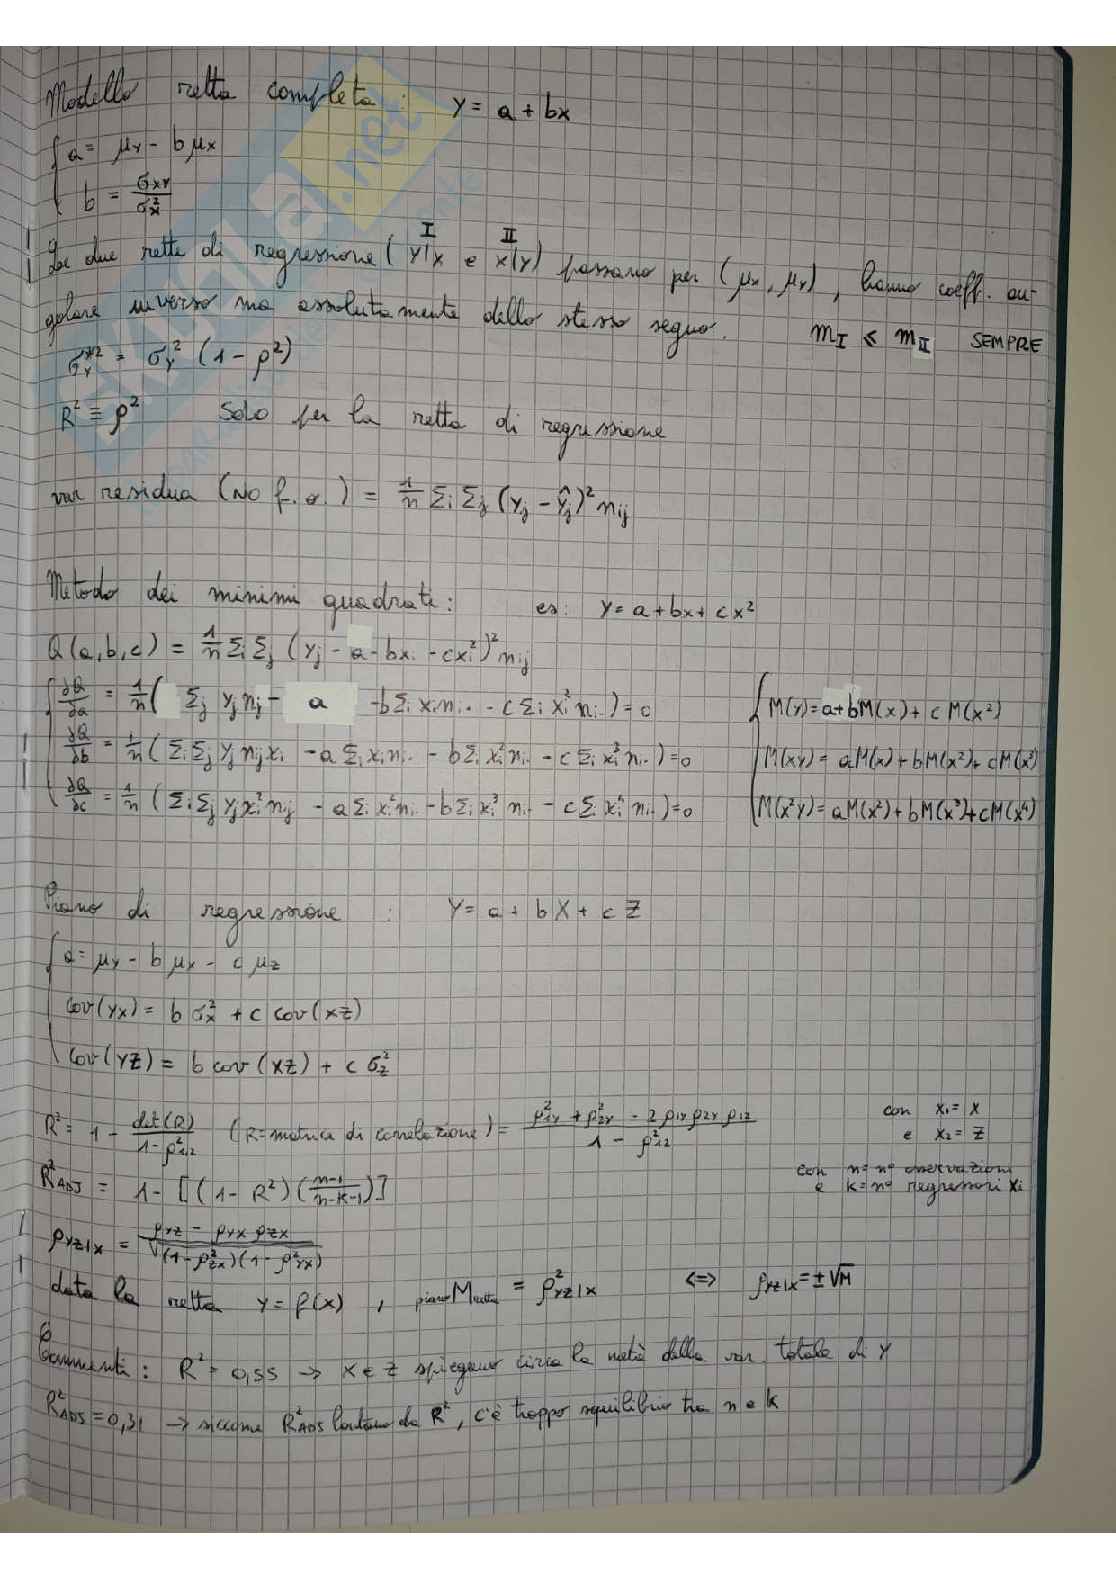 Modello retta completa : Y = a + bx
{ a = μY - b μX
b = σXY / σ²X
I II
Le due rette di regressione ( Y|X e X|Y) passano per (μX, μY), hanno coeff. an-
golare inverso ma assolutamente dello stesso segno. mI ≤ mII SEMPRE
σ*²Y = σY² (1 - ρ²)
R² ≡ ρ² Solo per la retta di regressione
var residua (No f. a.) = 1/n Σi Σj (Yj - Ŷj)² nij
Metodo dei minimi quadrati : es: Y = a + bx + cx²
Q(a,b,c) = 1/n Σi Σj (Yj - a - bxi - cxi²)² nij
{ ∂Q/∂a = 1/n ( Σj Yj nj - a - b Σi xi ni. - c Σi xi² ni. ) = 0
∂Q/∂b = 1/n ( Σi Σj Yj nij xi - a Σi xi ni. - b Σi xi² ni. - c Σi xi³ ni. ) = 0
∂Q/∂c = 1/n ( Σi Σj Yj xi² nij - a Σi xi² ni. - b Σi xi³ ni. - c Σi xi⁴ ni. ) = 0
{ M(Y) = a + bM(x) + c M(x²)
M(XY) = aM(x) + bM(x²) + cM(x³)
M(x²Y) = aM(x²) + bM(x³) + cM(x⁴)
Piano di regressione : Y = a + b X + c Z
{ a = μY - b μX - c μZ
cov(YX) = b σ²X + c cov(XZ)
cov(YZ) = b cov(XZ) + c σ²Z
R² = 1 - det(R) / 1 - ρ²12 (R = matrice di correlazione) = ρ²1Y + ρ²2Y - 2 ρ1Y ρ2Y ρ12 / 1 - ρ²12 con X1 = X
e X2 = Z
R²ADJ = 1 - [(1 - R²)(n-1 / n-k-1)] con n = n° osservazioni
e k = n° regressori Xi
ρYZ|X = ρYZ - ρYX ρZX / √(1-ρ²ZX)(1-ρ²YX)
data la retta Y = f(X) , piano M retta = ρ²YZ|X <=> ρYZ|X = ±√M
Commenti : R² = 0,55 → X e Z spiegano circa la metà della var. totale di Y
R²ADJ = 0,31 → siccome R²ADJ lontano da R², c'è troppo squilibrio tra n e k